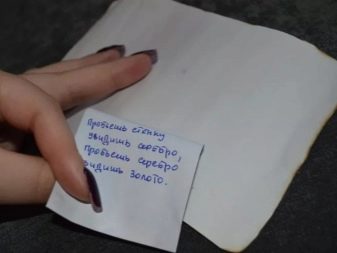 Пробьешь стенку
увидишь серебро,
пробьешь серебро
видишь золото.